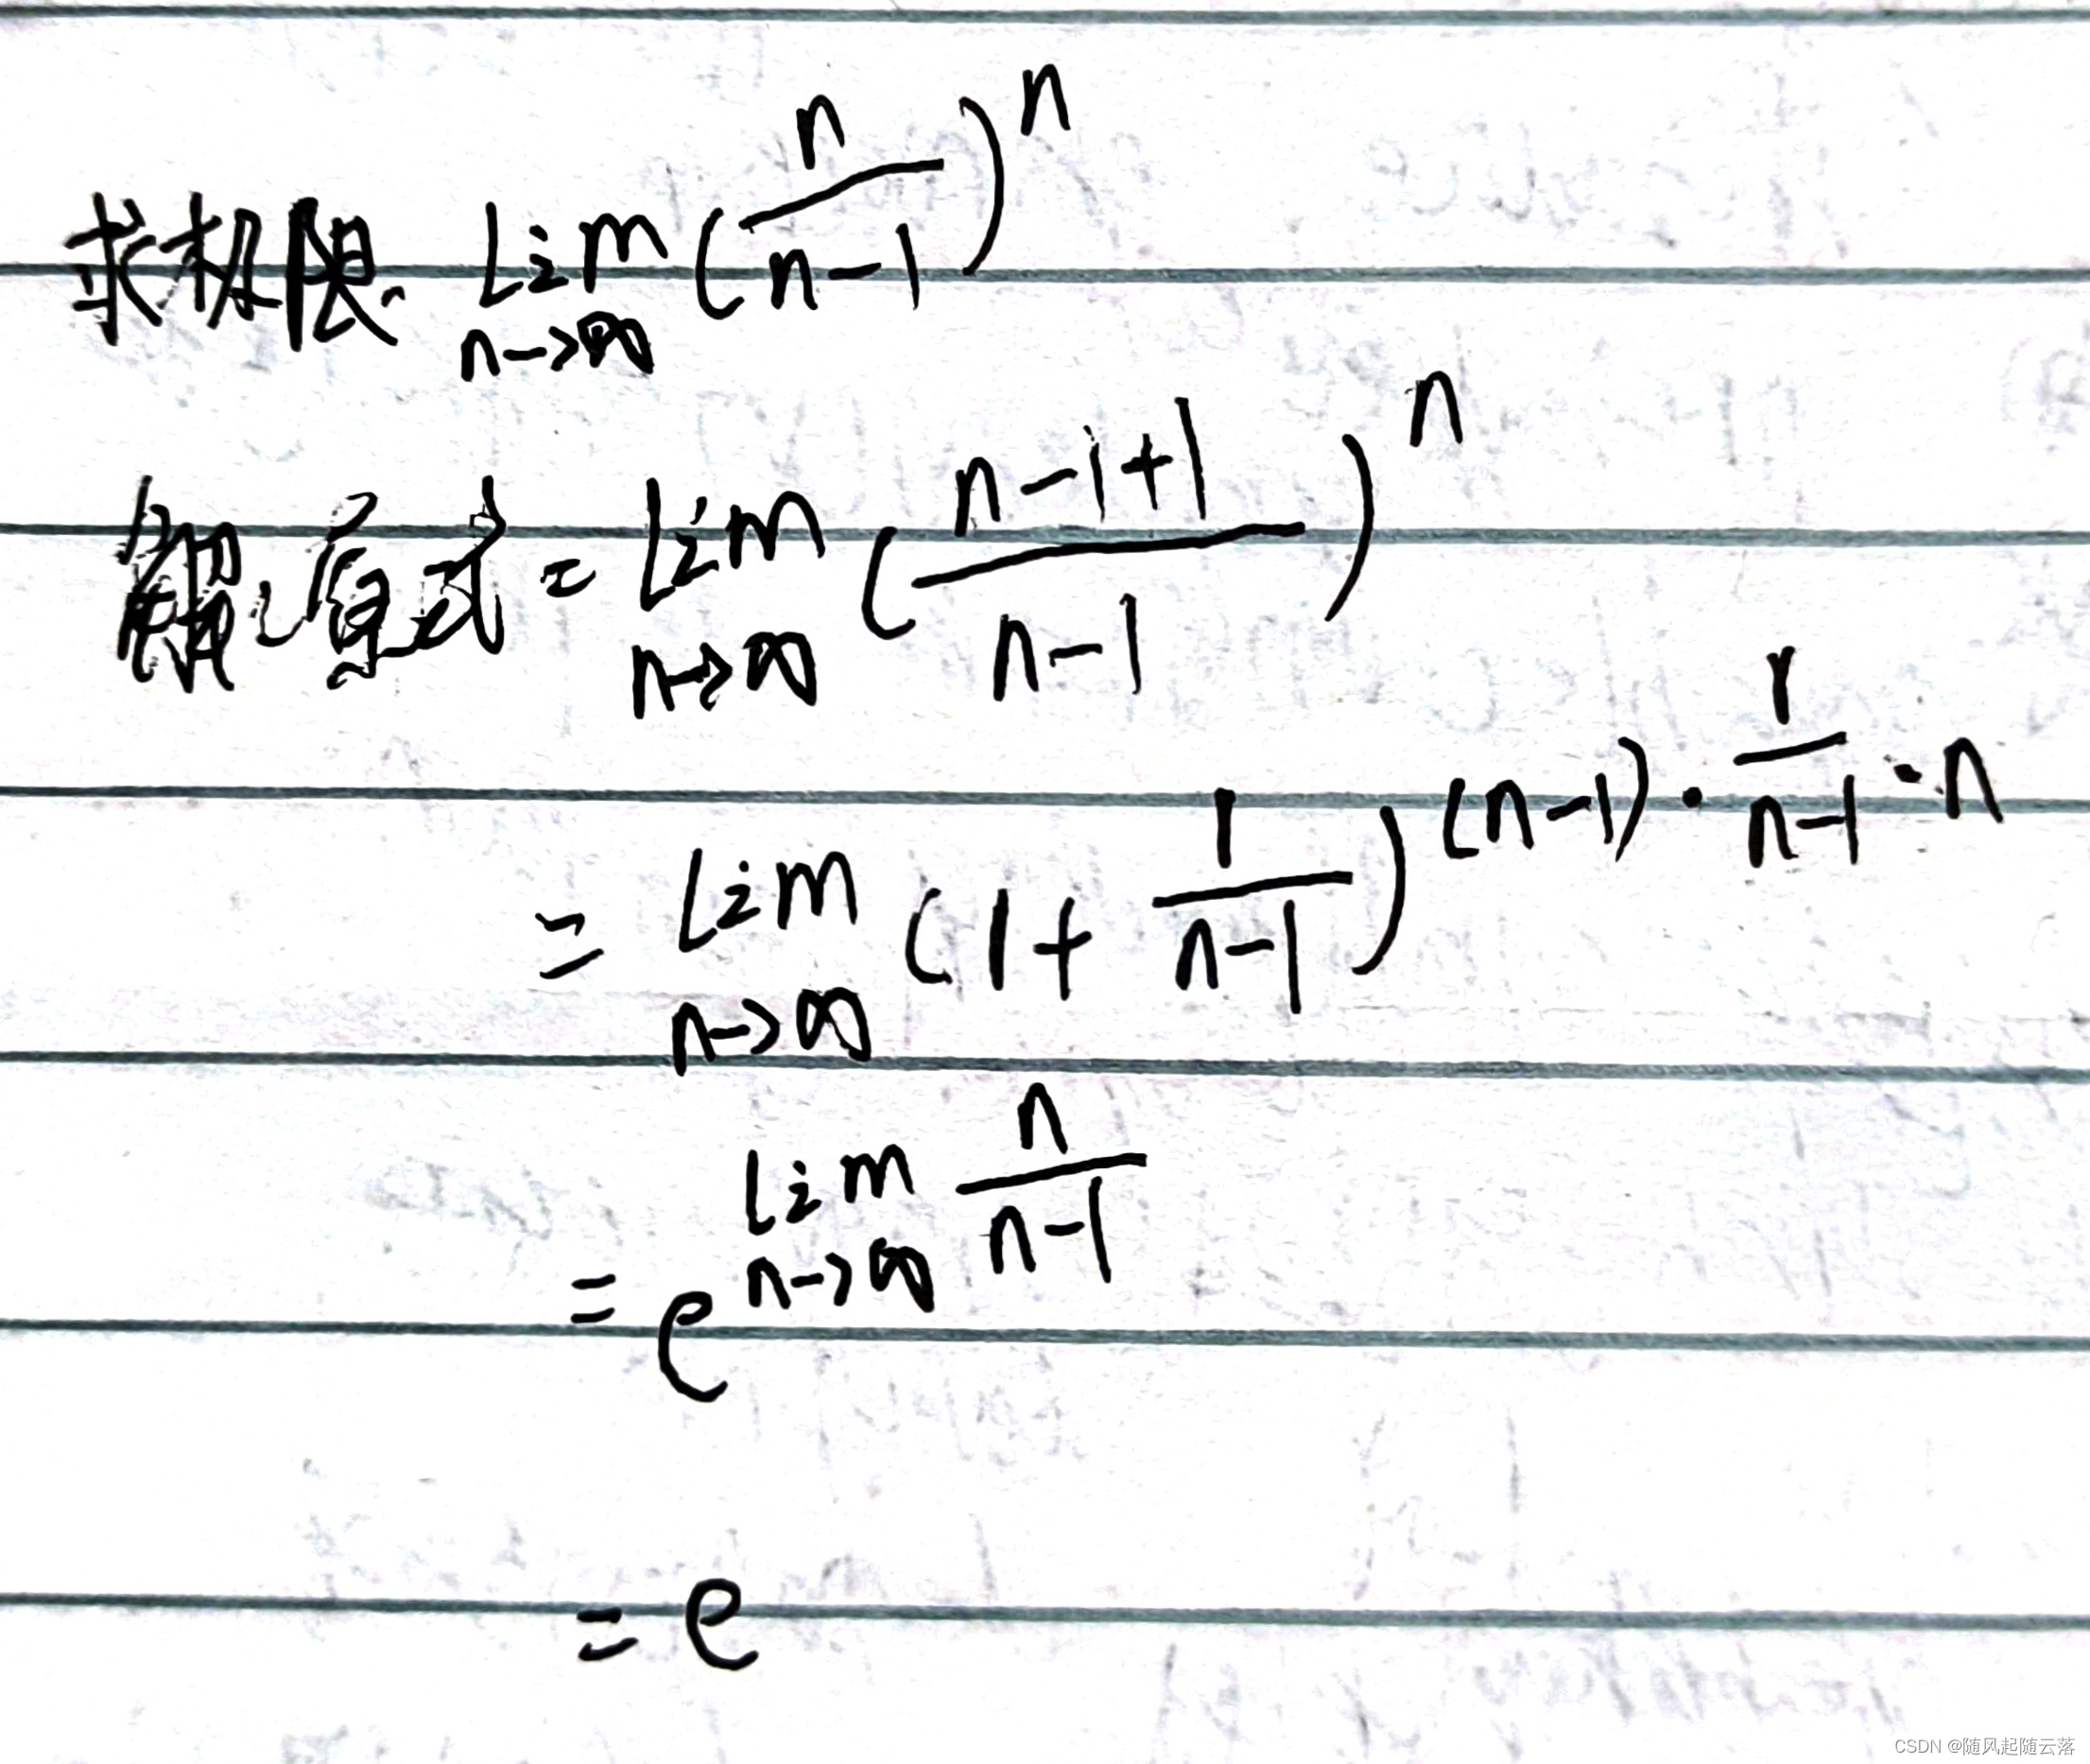 求极限. lim n→∞ (n/(n-1))^n
解:原式 = lim n→∞ ((n-1+1)/(n-1))^n
= lim n→∞ (1+1/(n-1))^((n-1)·1/(n-1)·n)
= e^(lim n→∞ n/(n-1))
= e
CSDN @随风起随云落